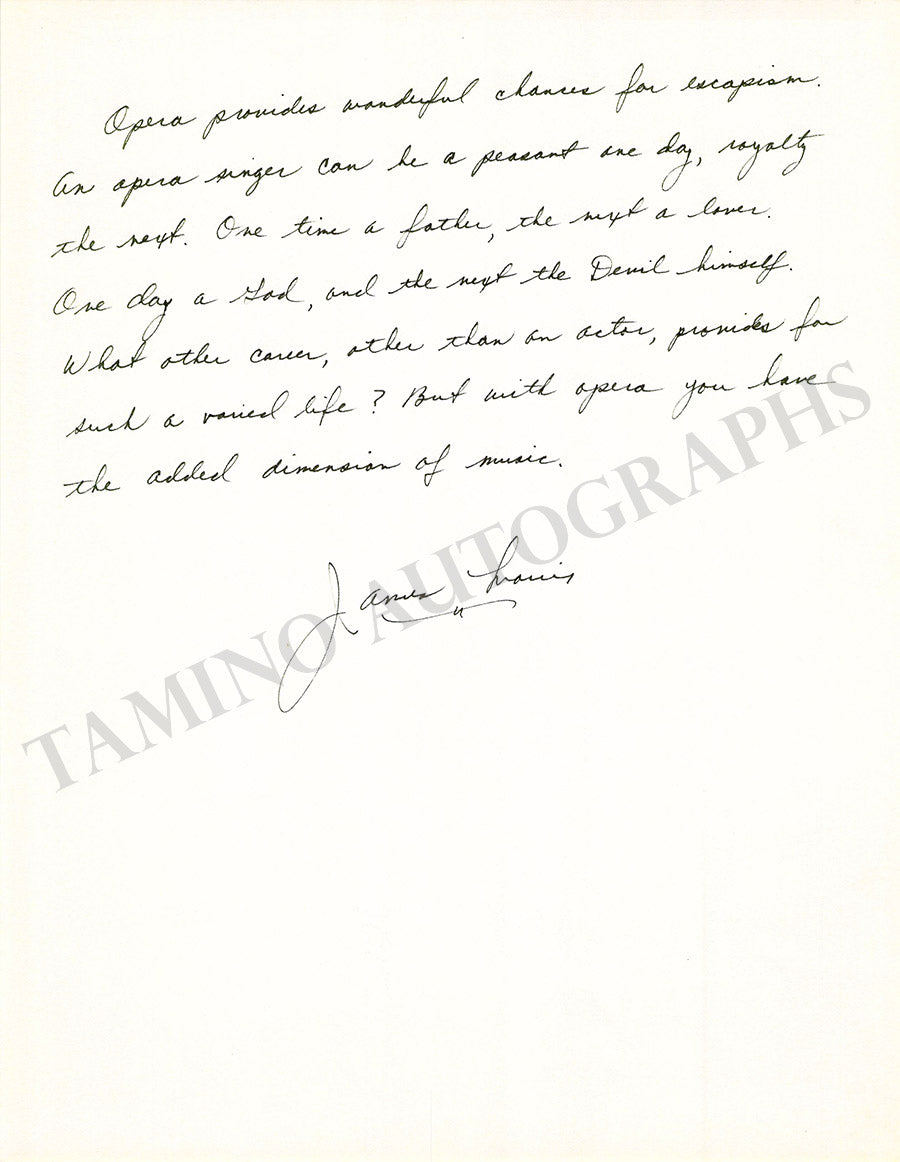 Opera provides wonderful chances for escapism.
An opera singer can be a peasant one day, royalty
the next. One time a father, the next a lover.
One day a God, and the next the Devil himself.
What other career, other than an actor, provides for
such a varied life? But with opera you have
the added dimension of music.
James Morris
TAMINO AUTOGRAPHS